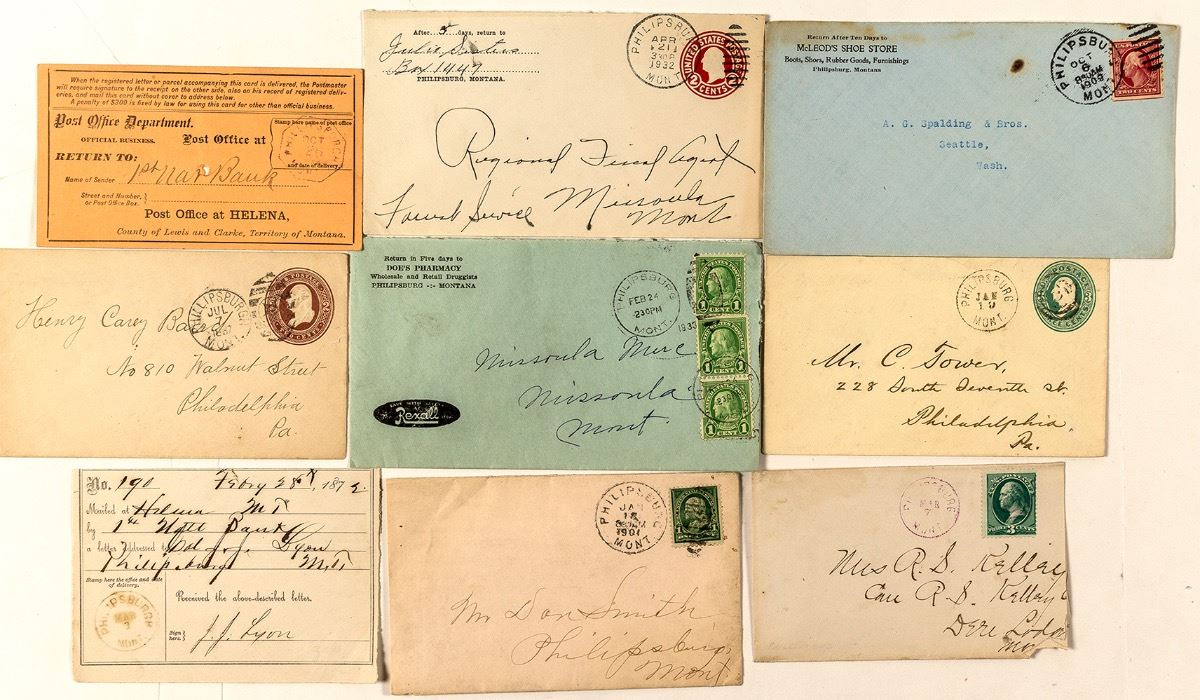 When the registered letter or parcel accompanying this card is delivered, the Postmaster
will require signature to the receipt on the other side, also on his record of registered deliv-
eries, and mail this card without cover to address below.
A penalty of $300 is fixed by law for using this card for other than official business.
Post Office Department.
OFFICIAL BUSINESS.
Post Office at
Stamp here name of post office
and date of delivery.
RETURN TO:
Name of Sender 1st Nat Bank
Street and Number,
or Post Office Box.
Post Office at HELENA,
County of Lewis and Clarke, Territory of Montana.
After 5 days, return to
Box 1447
PHILIPSBURG, MONTANA.
PHILIPSBURG
APR
21
1932
MONT.
UNITED STATES POSTAGE
2 CENTS 2
Regional Fiscal Agent
Forest Service Missoula
Mont
Return After Ten Days to
McLEOD'S SHOE STORE
Boots, Shoes, Rubber Goods, Furnishings
Philipsburg, Montana
PHILIPSBURG
OCT
8
1909
MONT.
TWO CENTS
A. G. Spalding & Bros.
Seattle,
Wash.
PHILLIPSBURGH
JUL
MONT.
Henry Carey Baird
No 810 Walnut Street
Philadelphia
Pa.
Return in Five days to
DOE'S PHARMACY
Wholesale and Retail Druggists
PHILIPSBURG -:- MONTANA
PHILIPSBURG
FEB 24
230PM
MONT.
1933
1 CENT 1
1 CENT 1
1 CENT 1
Missoula Merc
Missoula
Mont.
Rexall
PHILIPSBURG
JAN
19
MONT.
Mr. C. Tower,
228 South Seventh St.
Philadelphia,
Pa.
No. 190 Febry 28th, 187
Mailed at Helena MT
by 1st Natl Bank
a letter Addressed to Lyon
Philipsburg M.T.
Stamp here the office and date
of delivery.
Received the above-described letter.
PHILIPSBURGH
MAR
MONT.
Sign
here.
J. J. Lyon
PHILIPSBURG
JAN
18
1901
MONT.
Mr Don Smith
Philipsburg,
Mont
PHILIPSBURG
MAR
7
MONT.
3
Care R. S.
Deer Lodge